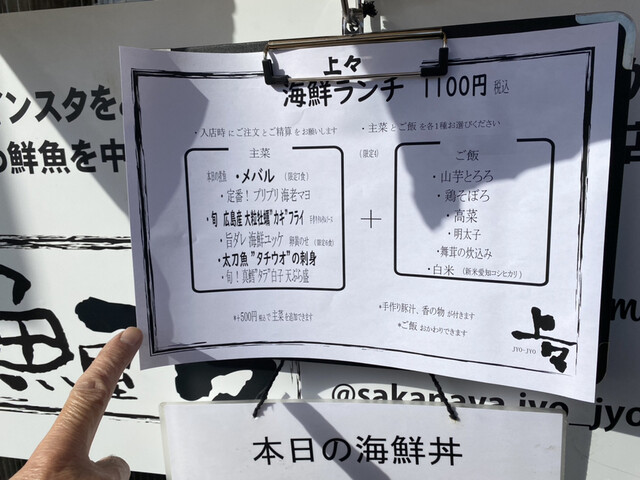 上々
海鮮ランチ 1100円 税込
・入店時にご注文とご精算をお願いします ・主菜とご飯を各1種お選びください
主菜
本日の煮魚 ・メバル (限定7食)
・定番！プリプリ海老マヨ
・旬 広島産 大粒牡蠣"カキ"フライ
・旨ダレ海鮮ユッケ 卵黄のせ (限定6食)
・太刀魚"タチウオ"の刺身
・旬！真鱈"タラ"白子天ぷら盛
*+500円税込で主菜を追加できます
+
ご飯
・山芋とろろ
(限定4)
・鶏そぼろ
・高菜
・明太子
・舞茸の炊込み
・白米 (新米愛知コシヒカリ)
*手作り豚汁、香の物が付きます
*ご飯おかわりできます
上々
JYO-JYO
インスタを
の鮮魚を中
魚屋
@sakanaya_jyo_jyo
本日の海鮮丼